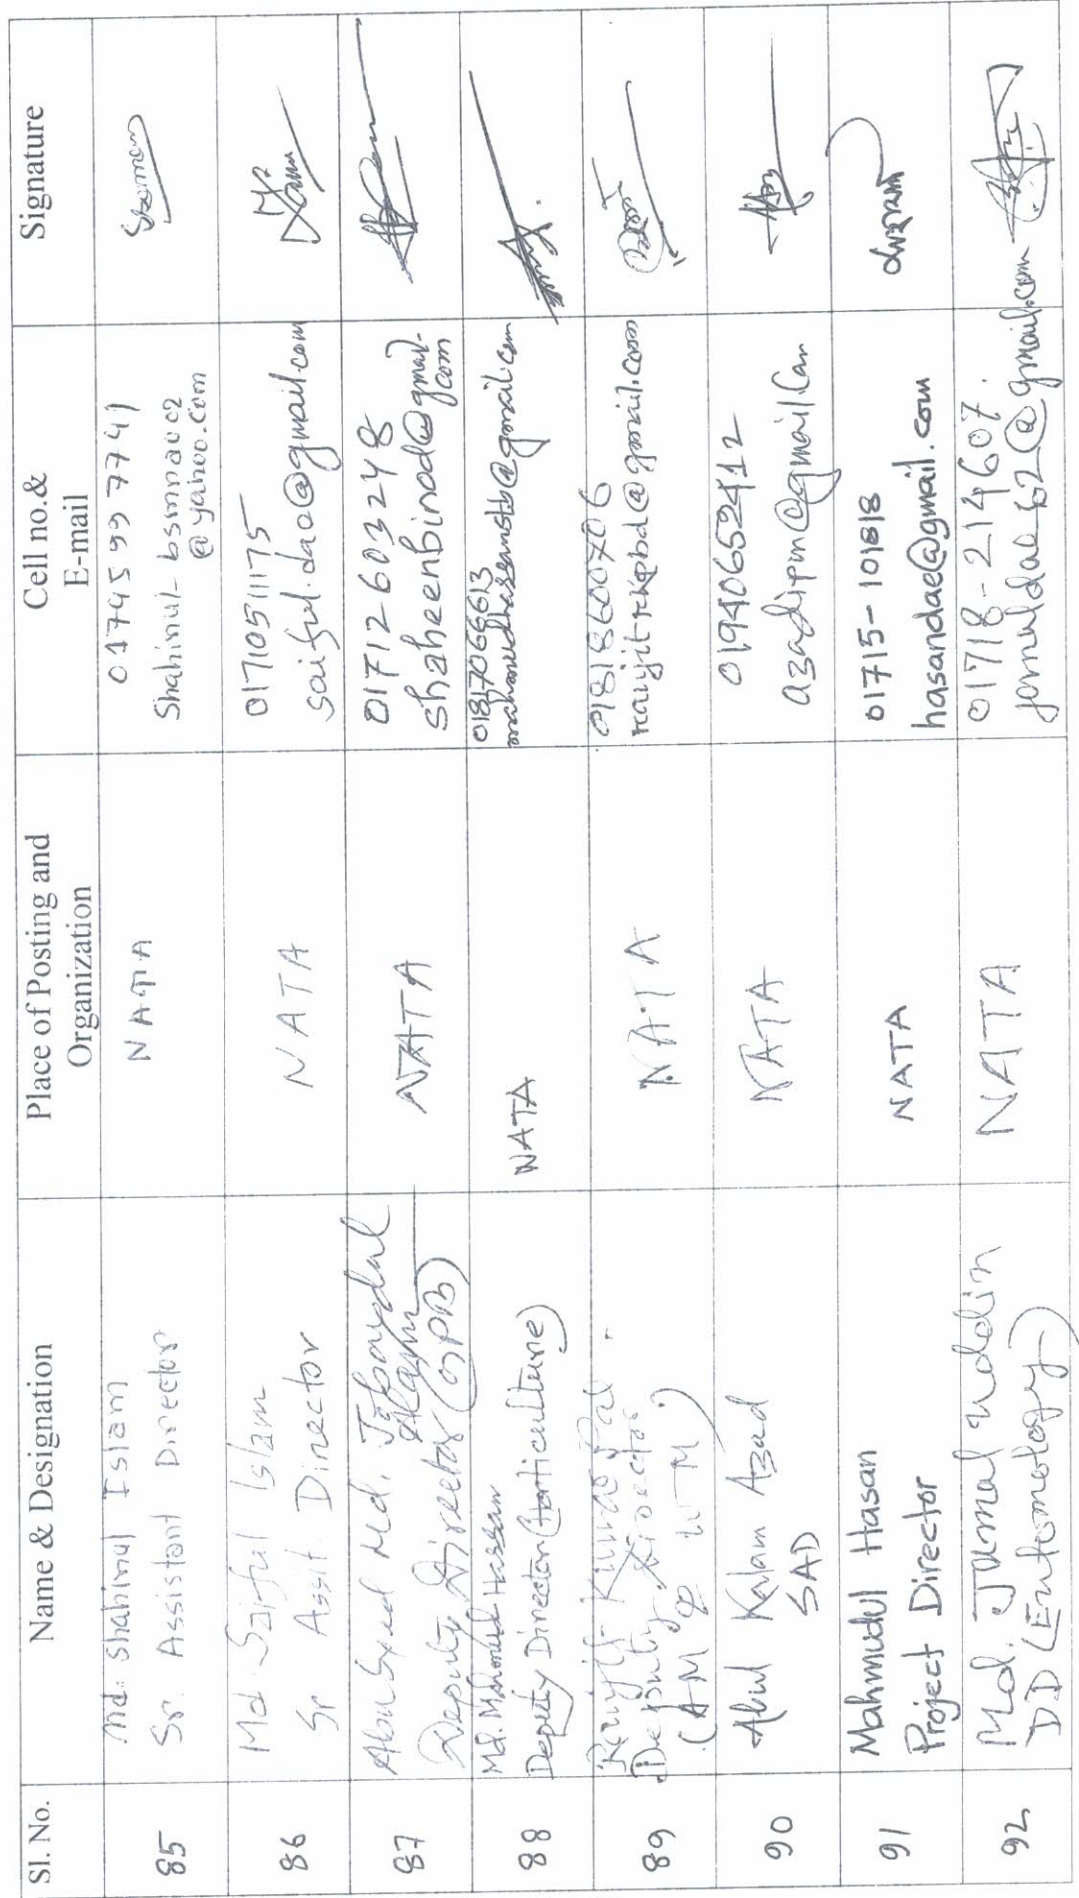 Sl. No.
Name & Designation
Place of Posting and
Organization
Cell no.&
E-mail
Signature
85
Md. Shahinul Islam
Sr. Assistant Director
NATA
01745997741
Shahinul-bsmrau02
@yahoo.com
86
Md Saiful Islam
Sr Assit. Director
NATA
01710511175
saiful.dae@gmail.com
87
Abu Syed Md. Jobaydul
Alam
Deputy Director (GPB)
NATA
01712603248
shaheenbinod@gmail.
com
88
Md. Mahmudul Hassan
Deputy Director (Horticulture)
NATA
01817066613
@gmail.com
89
Ranjit Kumar Pal
Deputy Director
(AM & WM)
NATA
01818600706
ranjitrkpbd@gmail.com
90
Abul Kalam Azad
SAD
NATA
01940652412
azadipm@gmail.com
91
Mahmudul Hasan
Project Director
NATA
01715-101818
hasandae@gmail.com
92
Md. Jamal Uddin
DD (Entomology)
NATA
01718-214607.
jamuldae62@gmail.com